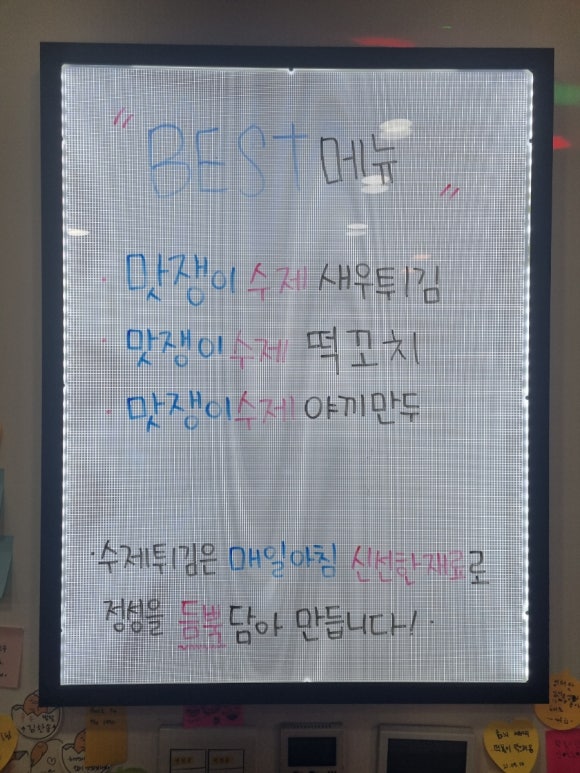 " BEST 메뉴 "
· 맛쟁이 수제 새우튀김
· 맛쟁이 수제 떡꼬치
· 맛쟁이 수제 야끼만두
· 수제튀김은 매일아침 신선한재료로
정성을 듬뿍 담아 만듭니다! ·